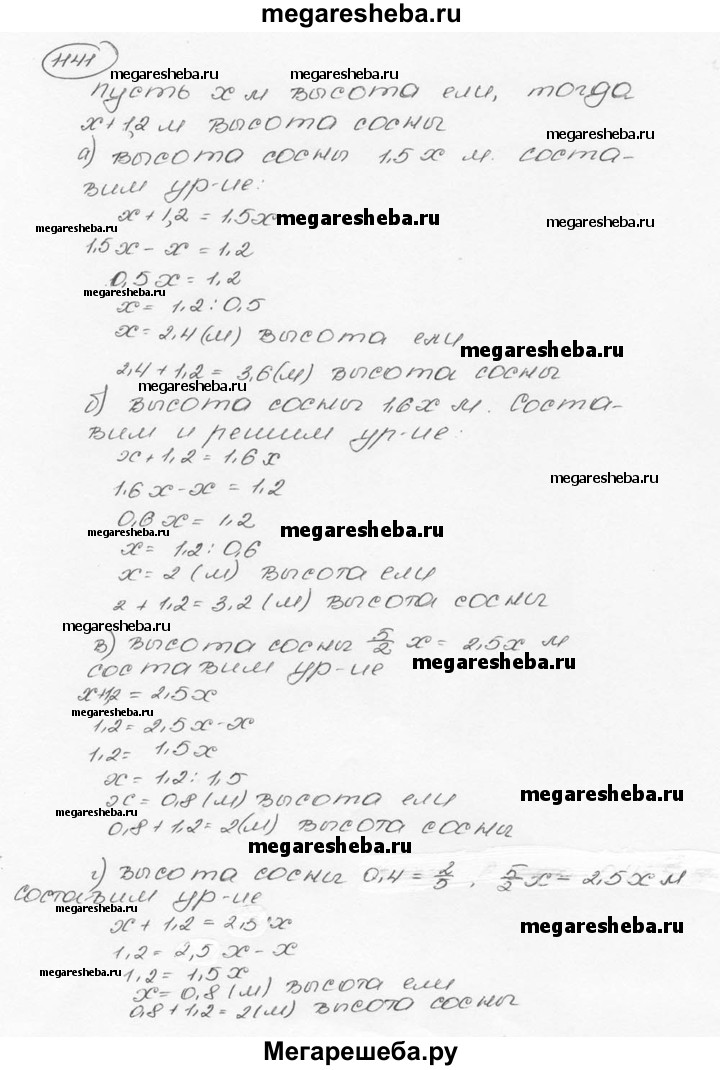 megaresheba.ru
1141
megaresheba.ru megaresheba.ru
Пусть x м высота ели, тогда
x+1,2 м высота сосны
megaresheba.ru
а) высота сосны 1,5x м. Соста-
вим ур-ие:
x+1,2 = 1,5x megaresheba.ru megaresheba.ru
megaresheba.ru
1,5x - x = 1,2
0,5x = 1,2
megaresheba.ru
x = 1,2 : 0,5
megaresheba.ru
x = 2,4 (м) высота ели
megaresheba.ru
2,4 + 1,2 = 3,6 (м) высота сосны
megaresheba.ru
б) высота сосны 1,6x м. Соста-
вим и решим ур-ие:
x+1,2 = 1,6x
megaresheba.ru
1,6x - x = 1,2
0,6x = 1,2
megaresheba.ru megaresheba.ru
x = 1,2 : 0,6
x = 2 (м) высота ели
2 + 1,2 = 3,2 (м) высота сосны
megaresheba.ru
в) высота сосны 5/2 x = 2,5x м
составим ур-ие megaresheba.ru
x+1,2 = 2,5x
megaresheba.ru
1,2 = 2,5x - x
1,2 = 1,5x
x = 1,2 : 1,5
x = 0,8 (м) высота ели megaresheba.ru
megaresheba.ru
0,8 + 1,2 = 2 (м) высота сосны
megaresheba.ru
г) высота сосны 0,4 = 2/5, 5/2 x = 2,5x м
составим ур-ие
megaresheba.ru
x + 1,2 = 2,5x megaresheba.ru
1,2 = 2,5x - x
megaresheba.ru 1,2 = 1,5x
x = 0,8 (м) высота ели
megaresheba.ru
0,8 + 1,2 = 2 (м) высота сосны
Мегарешеба.ру